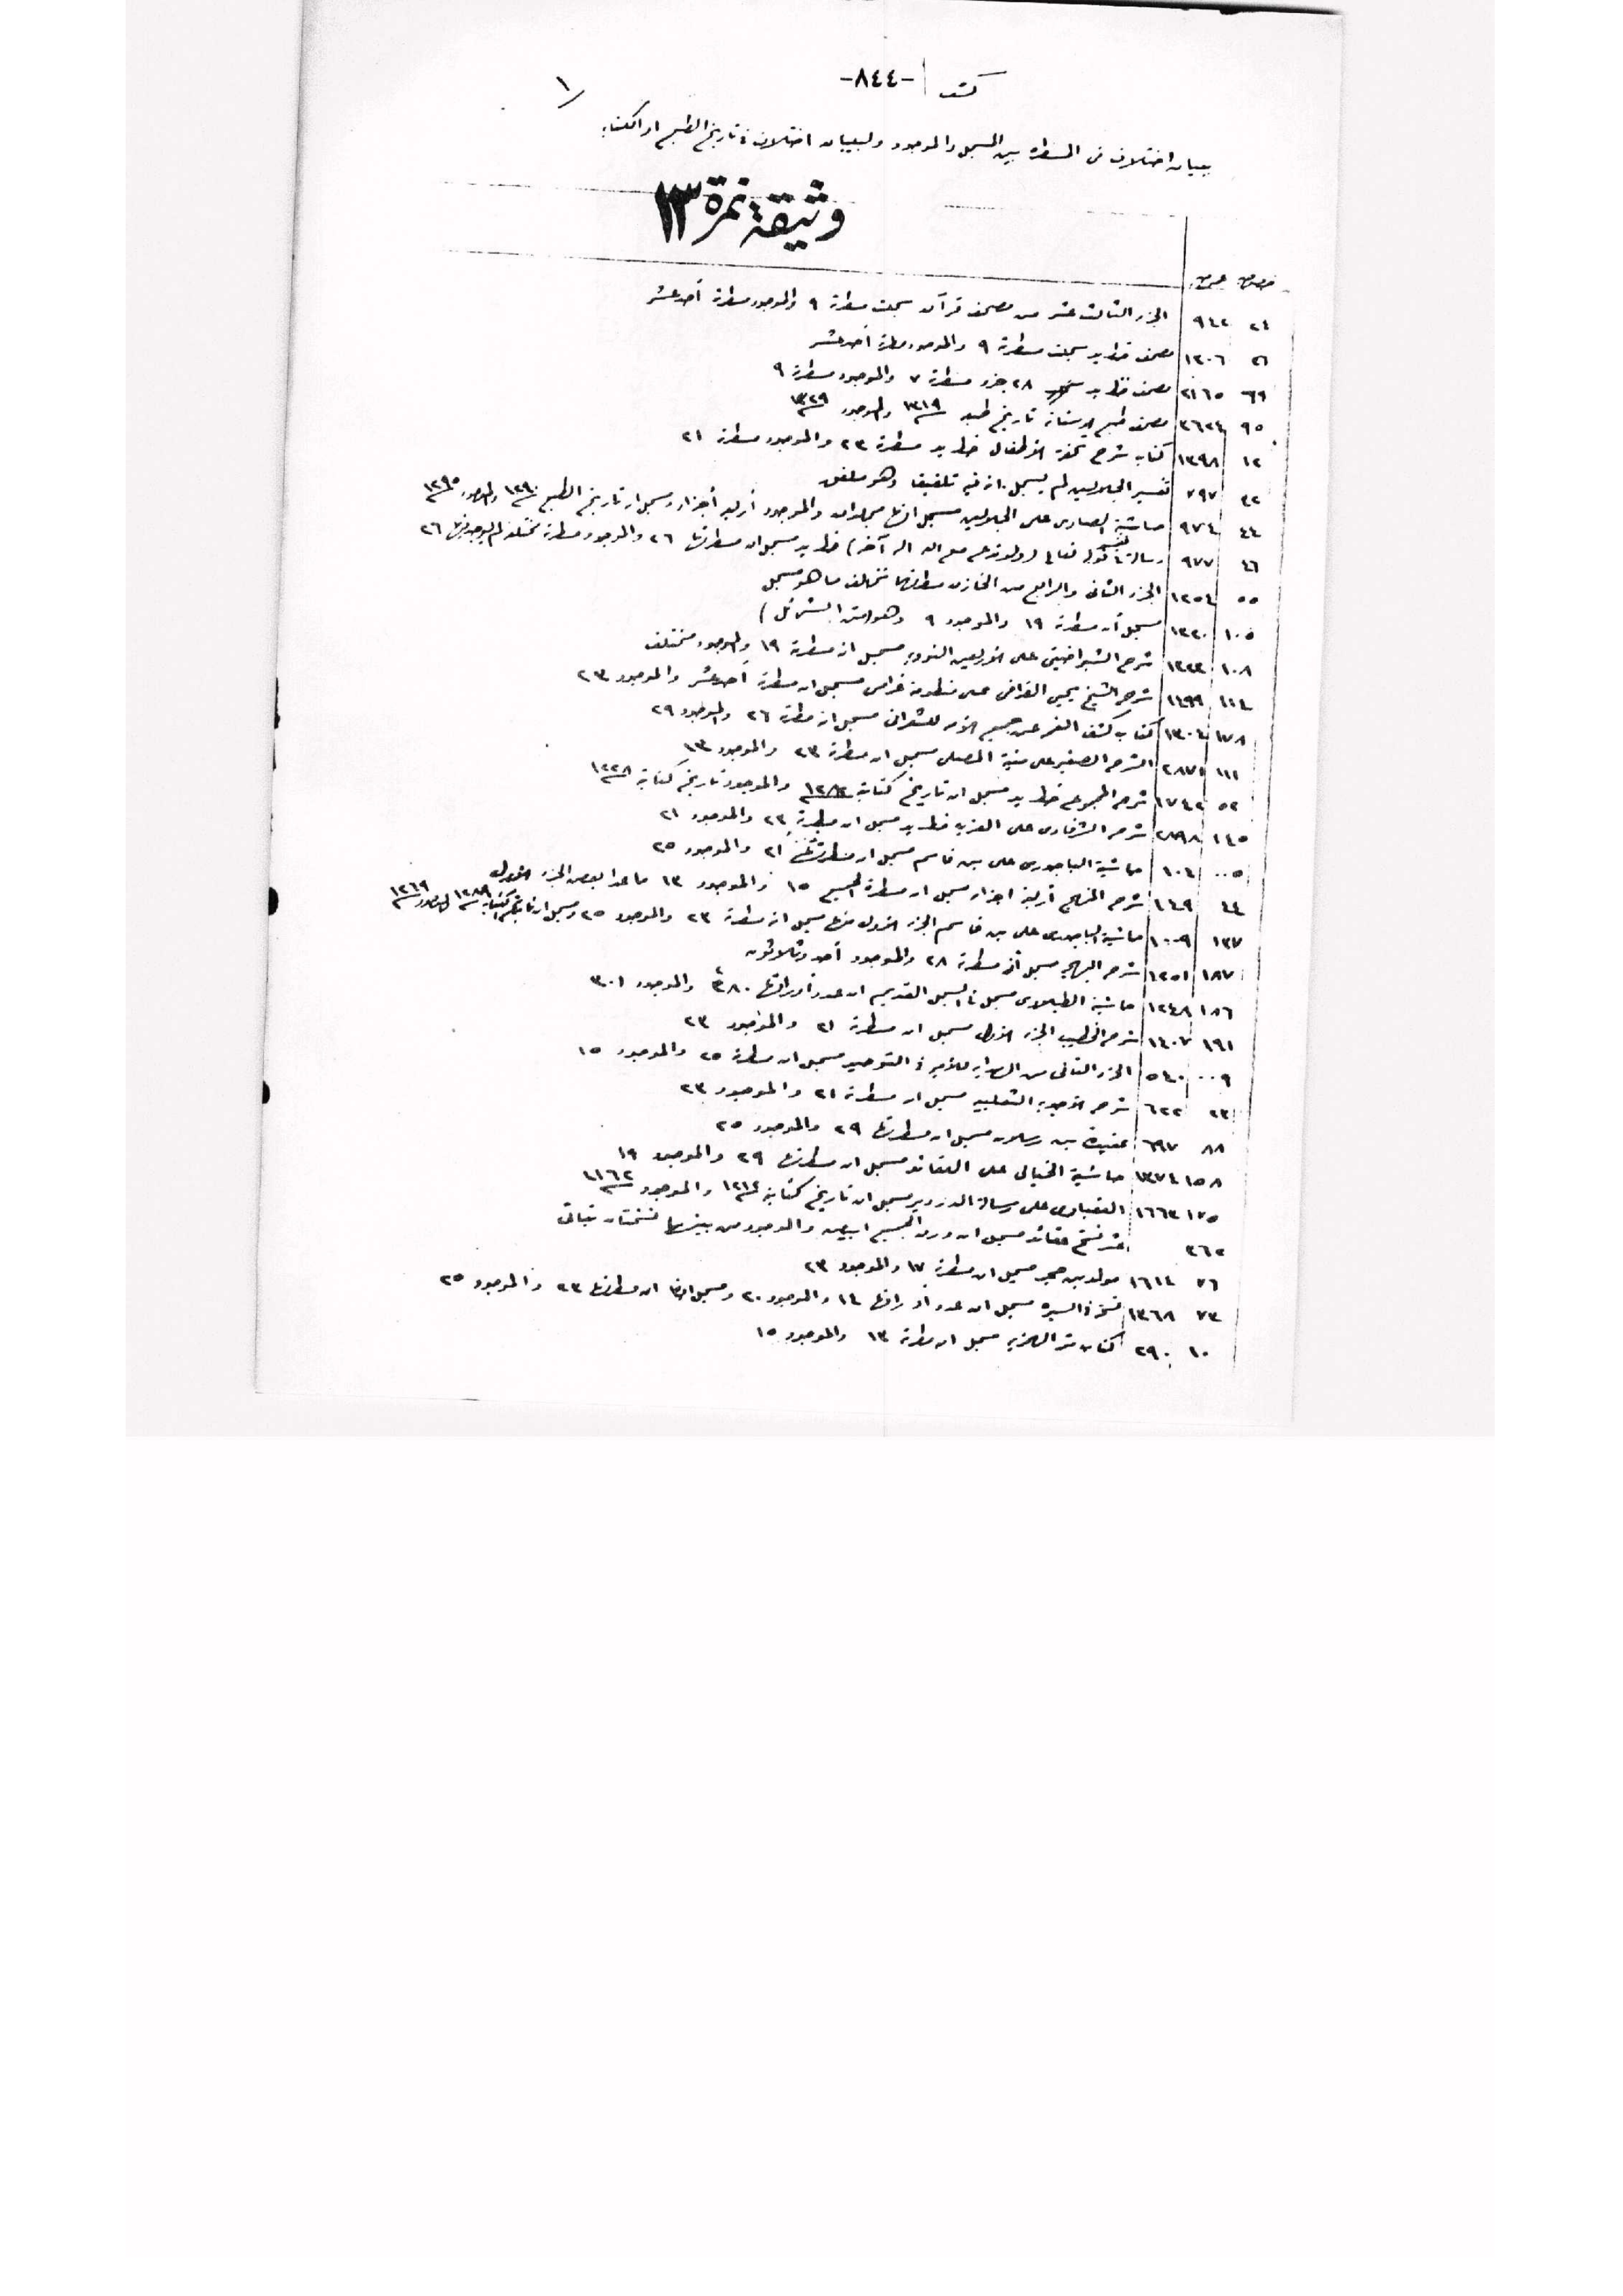 كشف -٨٤٤-
١
ببيان اختلاف في المسطرة بين المسجل والموجود ولبيان اختلاف في تاريخ الطبع او الكتابة
وثيقة نمرة ١٣
خصوص عموم
٢٤ ٩٤٢ الجزء الثالث عشر من مصحف قرآن سجلت مسطرة ٩ والموجود مسطرة أحد عشر
٢٦ ١٢٠٦ مصحف خط يد سجلت مسطرة ٩ والموجود مسطرة أحد عشر
٦٩ ٢١٦٥ مصحف خط يد ٢٨ جزء مسطرة ٧ والموجود مسطرة ٩
٩٥ ٢٦٢٤ مصحف طبع الاستانة تاريخ طبعه ١٣١٩ والموجود ١٣٢٩
١٢ ١٣٩٨ كتاب شرح تحفة الأطفال خط يد مسطرة ٢٣ والموجود مسطرة ٢١
٣٢ ٧٩٧ تفسير الجلالين لم يسجل ان فيه تلفيقا وهو ملفق
٤٤ ٩٧٤ حاشية الصاوى على الجلالين مسجل انها مجلدان والموجود أربعة أجزاء ومسجل ان تاريخ الطبع ١٢٩٠ والموجود ١٢٩٥
٤٦ ٩٧٧ رسالة تفسير قوله تعالى (ولا تدع مع الله اله آخر) خط يد مسجل ان مسطرتها ٢٦ والموجود مسطرة مختلفة لم يوجد فيها ٢٦
٥٥ ١٢٥٤ الجزء الثانى والرابع من الخازن مسطرتها تخالف ما هو مسجل
١٠٥ ١٢٢٠ مسجل أن مسطرة ١٩ والموجود ٩ وهو (متن الشمائل)
١٠٨ ١٢٢٣ شرح الشبراخيتى على الأربعين النووية مسجل ان مسطرة ١٩ والموجود مختلف
١١٤ ١٤٩٩ شرح الشيخ يحيى القرافى على منظومة غرامى مسجل ان مسطرة أحد عشر والموجود ٢٣
١٧٨ ١٣٠٤ كتاب كشف الغمة عن جميع الأمة للشعرانى مسجل ان مسطرة ٢٦ والموجود ٢٩
١١١ ٢٨٧١ الشرح الصغير على منية المصلى مسجل ان مسطرة ٢٣ والموجود ١٣
٥٢ ١٧٤٢ شرح المجموع خط يد مسجل ان تاريخ كتابة ١٢٨٢ والموجود تاريخ كتابة ١٢٢٨
١٤٥ ٢٨٩٨ شرح الشرقاوى على العزيه خط يد مسجل ان مسطرة ٢٣ والموجود ٢١
٠٠٥ ١٠٤ حاشية الباجورى على بن قاسم مسجل ان مسطرتها ٢١ والموجود ٢٥
٤٤ ١٤٩ شرح المنهج أربعة اجزاء مسجل ان مسطرة الجميع ١٥ والموجود ١٣ ما عدا بعض الجزء الأول
١٣٧ ١٠٠٩ حاشية الباجورى على بن قاسم الجزء الأول منها مسجل ان مسطرة ٢٣ والموجود ٢٥ ومسجل ان تاريخ كتابة ١٢٨٩ والموجود ١٢٦٩
١٨٧ ١٢٥١ شرح البهجه مسجل أن مسطرة ٢٨ والموجود أحد وثلاثون
١٨٦ ١٢٤٨ حاشية الطبلاوى مسجل في السجل القديم ان عدد أوراقها ٣٨٠ والموجود ٣٠١
١٩١ ١٤٠٧ شرح الخطيب الجزء الأول مسجل ان مسطرة ٢١ والموجود ٢٣
٠٠٩ ٥٤٠ الجزء الثانى من الهداية للأمير في التوحيد مسجل ان مسطرة ٢٥ والموجود ١٥
٢٣ ٦٢٢ شرح الأجوبة مسجل ان مسطرة ٢١ والموجود ٢٣
٨٨ ٦٩٧ عقيدة بن رسلان مسجل ان مسطرتها ٢٩ والموجود ٢٥
١٥٨ ١٣٧٤ حاشية الخيالى على العقائد مسجل ان مسطرتها ٢٩ والموجود ١٩
١٧٥ ١٦٦٣ العقباوى على رسالة الدردير مسجل ان تاريخ كتابة ١٢١٤ والموجود ١١٦٢
٣٦٢ عشر نسخ عقائد مسجل ان ورق الجميع ابيض والموجود من بينها نسختان نباتى
٧٦ ١٦١٤ مولد بن حجر مسجل ان مسطرة ١٧ والموجود ٢٣
٧٣ ١٣٦٨ نسخة في السيرة مسجل ان عدد أوراقها ١٤ والموجود ٢٠ ومسجل أيضا ان مسطرتها ٢٣ والموجود ٢٥
١٠ ٢٩٠ كتاب متن العزية مسجل ان مسطرة ١٣ والموجود ١٥